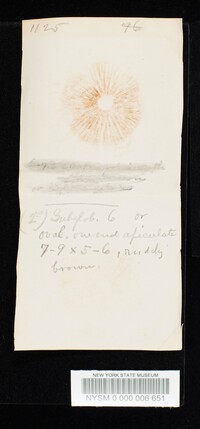 1125 96
(E) Subglob. 6 or
oval. one end apiculate
7-9 x 5-6, ruddy
brown
NEW YORK STATE MUSEUM
NYSM 0 000 006 651